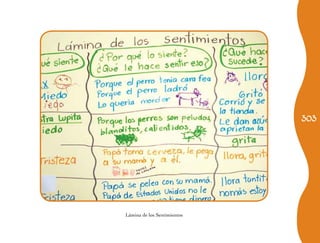 Lámina de los Sentimientos
ué siente
¿Por qué lo siente?
¿Qué le hace sentir eso?
¿Qué hac
sucede?
Miedo
Porque el perro tenía cara fea
Porque el perro ladró
Lo quería morder
llor
Gritó
Corrió y se
la tienda.
tra Lupita
iedo
Porque los perros son peludos,
blanditos, calientidos.
Le dan
aprietan la
grita
Tristeza
Papá toma cerveza, le pega
a su mamá y a él.
llora, grit
Tristeza
Papá se pelea con su mamá.
Papá de Estados Unidos no le
tiene dinero
llora
nomás estoy
303
Lámina de los Sentimientos